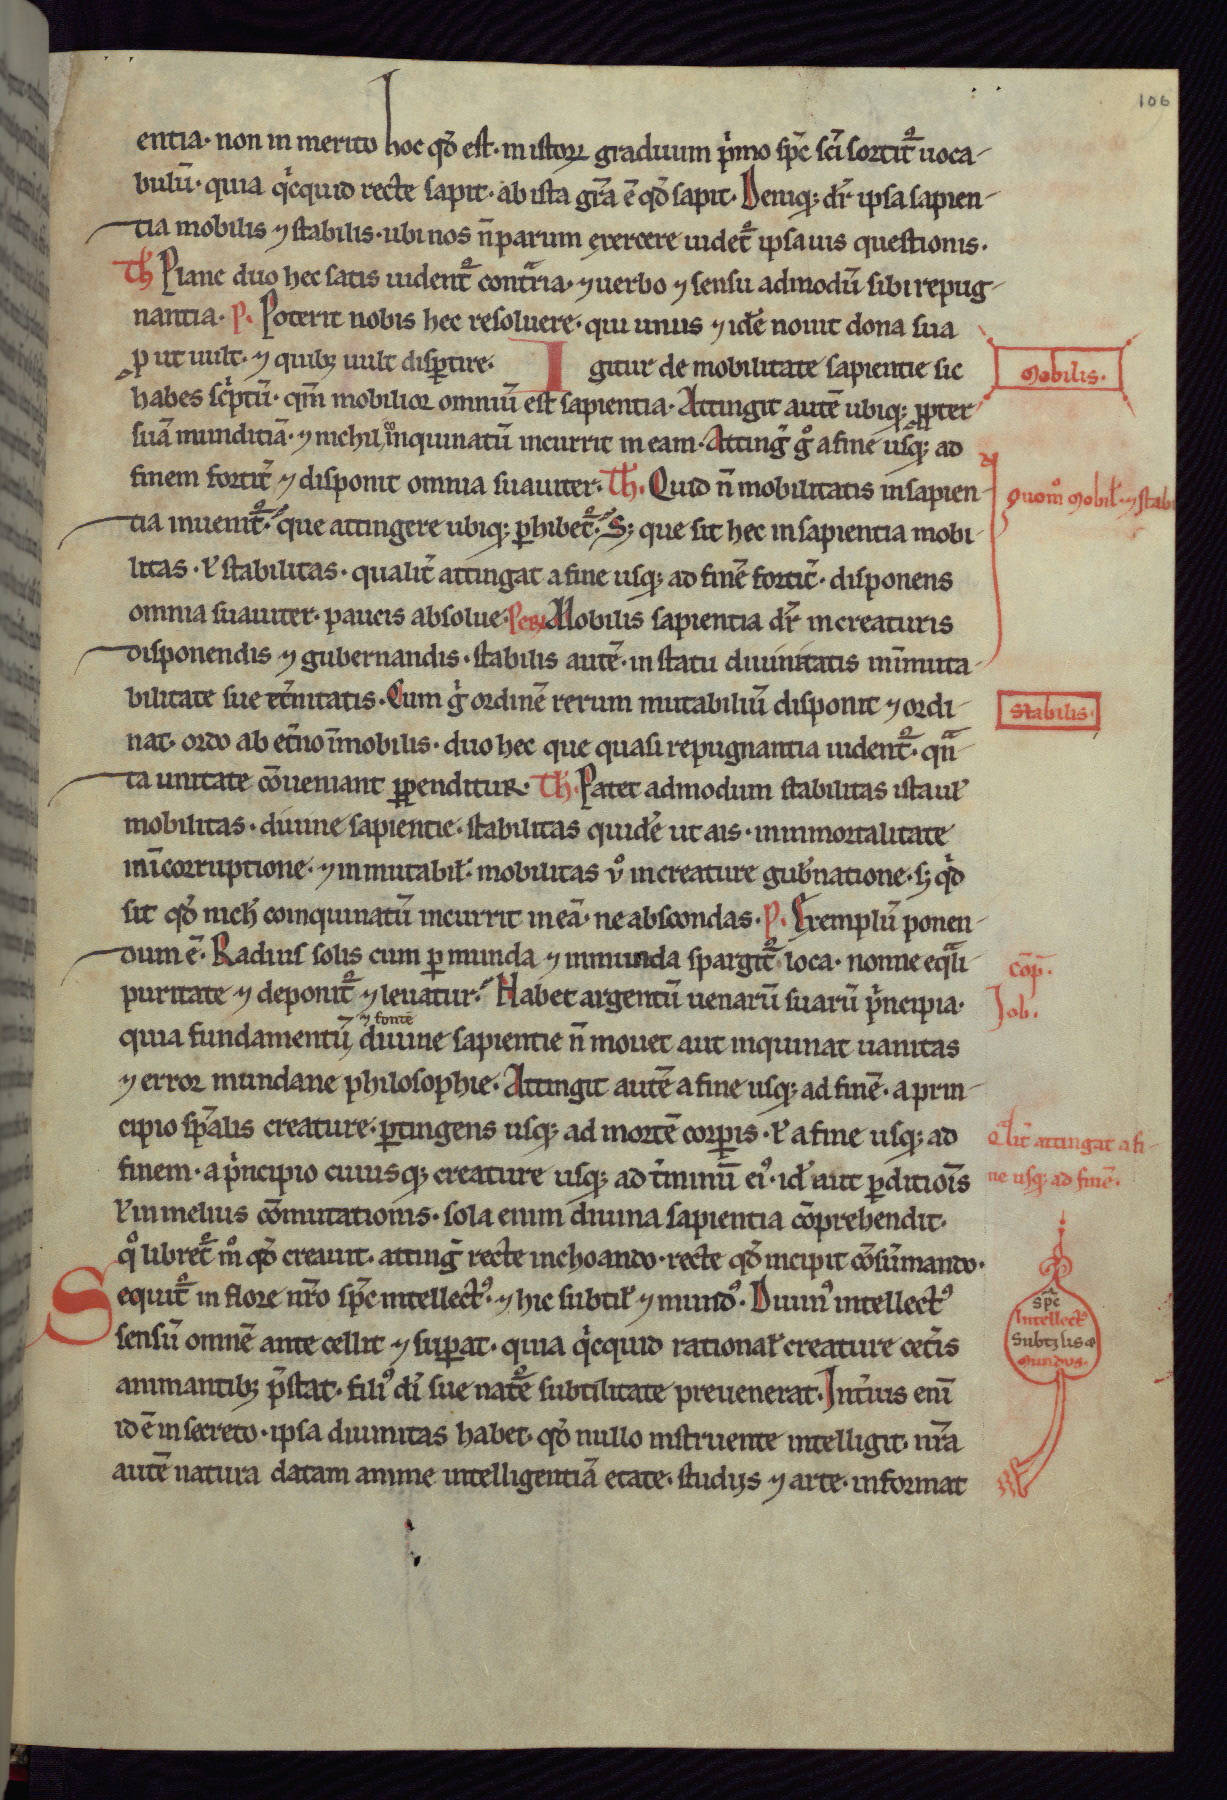 106
entia· non in merito hoc qđ est· in istoꝝ graduum p̍mo spc̄ sc̄i sortit᷑ uoca-
bulū· quia qͥcquid recte sapit· ab ista gr̄a ē qđ sapit· Deniqꝫ dr̄ ipsa sapien-
tia mobilis ⁊ stabilis· ubi nos n̄ parum exercere uidet᷑ ipsa uis questionis·
Th̄ Plane duo hec satis uident᷑ contͣria· ⁊ uerbo ⁊ sensu admodū sibi repug-
nantia· P. Poterit nobis hec resoluere· qui unus ⁊ idē nouit dona sua
ꝓ ut uult· ⁊ quibꝫ uult disꝑtire· Igitur de mobilitate sapientie sic
habes sc̍ptū· qm̄ mobilior omniū est sapientia· Attingit autē ubiqꝫ ꝓpter
suā munditiā· ⁊ nichil inquinatū incurrit in eam· Attinḡ gͦ a fine usqꝫ ad
finem fortit̄ ⁊ disponit omnia suauiter· Th̄. Quid n̄ mobilitatis in sapien-
tia inuenit᷑· que attingere ubiqꝫ ꝓhibet᷑· Sꝫ que sit hec in sapientia mobi-
litas· ł stabilitas· qualit̄ attingat a fine usqꝫ ad finē fortit̄· disponens
omnia suauiter· paucis absolue· Per. Mobilis sapientia dr̄ in creaturis
disponendis ⁊ gubernandis· stabilis autē· in statu diuinitatis inmuta-
bilitate sue et̄nitatis· Cum gͥ ordinē rerum mutabiliū disponit ⁊ ordi-
nat· ordo ab et̄no īmobilis· duo hec que quasi repugnantia uident᷑· qn̄-
ta unitate cōueniant ꝑpenditur· Th̄. Patet admodum stabilitas ista uł
mobilitas· diuine sapientie· stabilitas quidē ut ais· inmortalitate
in īcorruptione· ⁊ inmutabił· mobilitas uͦ in creature gub̄natione· sꝫ qͥd
sit qđ nich̄ coinquinatū incurrit in eā· ne abscondas· P. Exemplū ponen-
dum ē· Radius solis cum ꝑ munda ⁊ inmunda spargit᷑ loca· nonne eqͣli
puritate ⁊ deponit᷑ ⁊ leuatur· Habet argentū uenarū suarū p̍ncipia·
⁊ fontē
quia fundamentū diuine sapientie n̄ mouet aut inquinat uanitas
⁊ error mundane philosophie· Attingit autē a fine usqꝫ ad finē· a prin-
cipio sp̄alis creature· ꝑtingens usqꝫ ad mortē corꝑis· ł a fine usqꝫ ad
finem· a p̍ncipio cuiusqꝫ creature usqꝫ ad t̄minū ei᷒· idē aut ꝑditiōis
ł in melius cōmutationis· sola enim diuina sapientia cōprehendit·
qͦ libret᷑ mͦ qđ creauit· attinḡ recte inchoando· recte qđ incipit cōsūmando·
Sequit᷑ in flore nr̄o spc̄ intellect᷒· ⁊ hic subtił ⁊ mund᷒· Diuin᷒ intellect᷒
sensū omnē ante cellit ⁊ suꝑat· quia qͥcquid rational̄ creature cet̄is
animantibꝫ p̄stat· fili᷒ di̍ sue nat̄e subtilitate preuenerat· Int̄ius enī
id ē in secreto· ipsa diuinitas habet· qđ nullo instruente intelligit· nr̄a
autē natura datam anime intelligentiā etate· studijs ⁊ arte· informat
Mobilis·
Quomͦ mobił· ⁊ stabi
Stabilis·
cōp̄.
Job.
Qͣlit̄ attingat a fi-
ne usqꝫ ad finē·
spc̄
Intellect᷒
Subtilis ⁊
mundus·